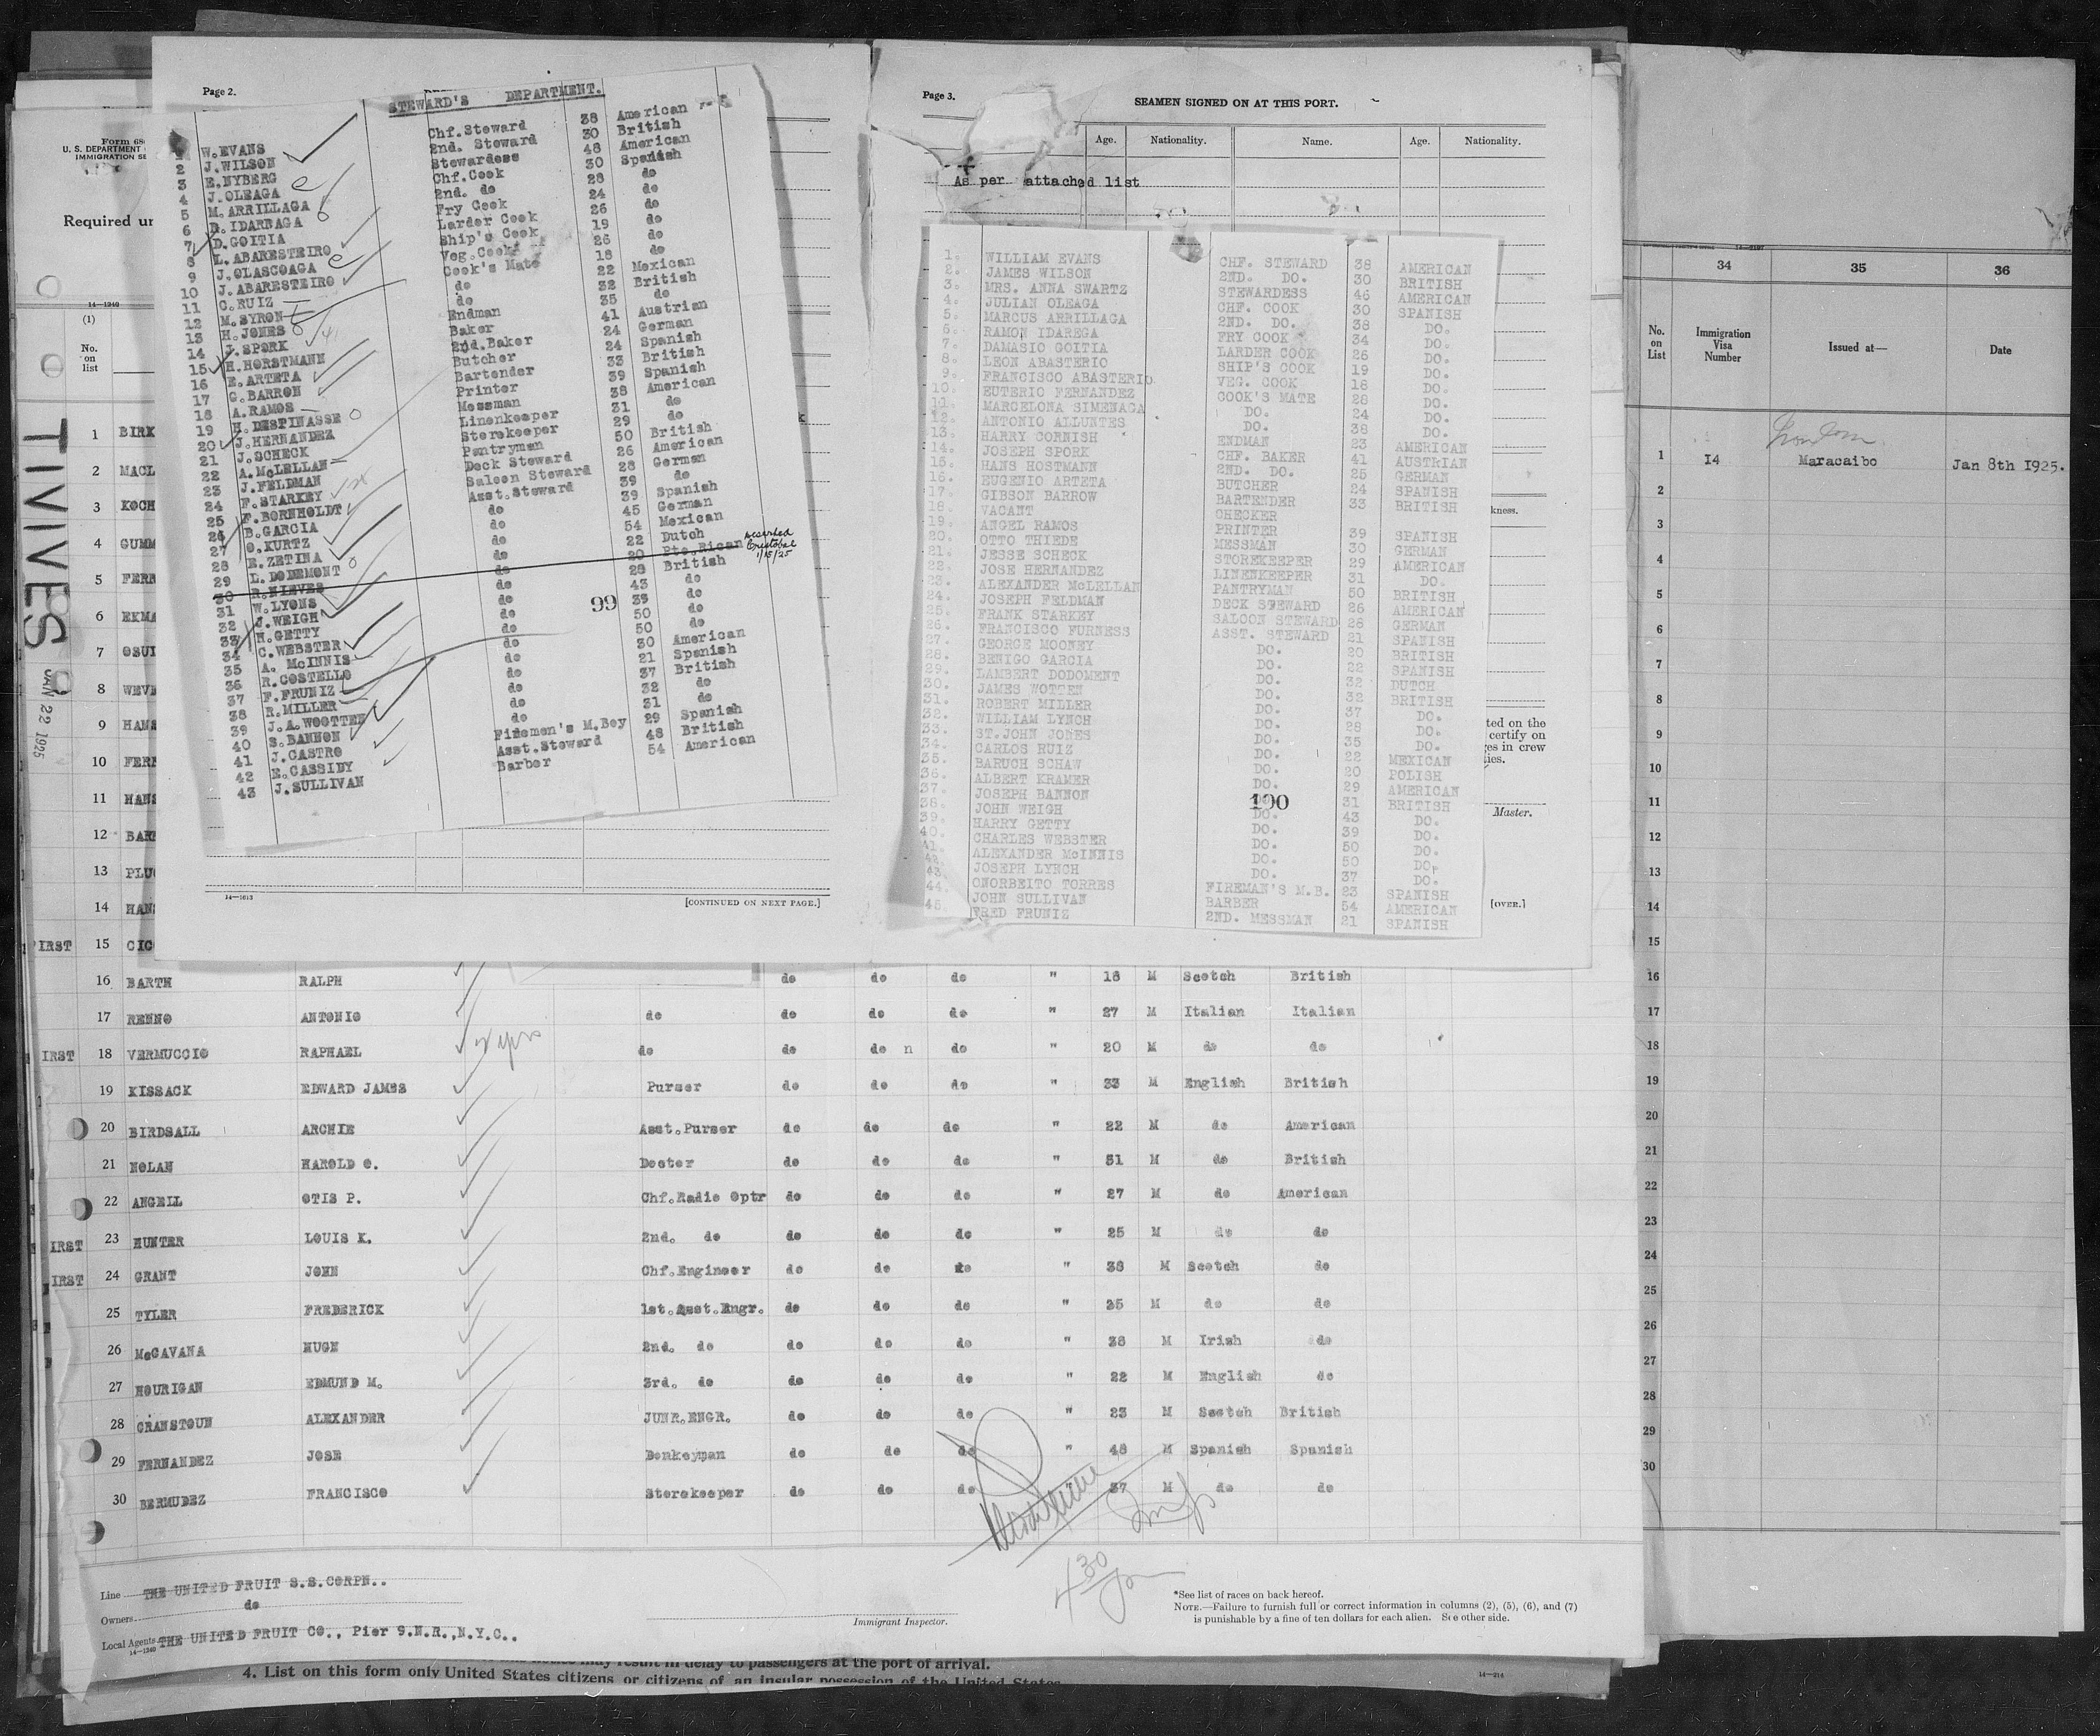 Page 2.
STEWARD'S DEPARTMENT.
W.EVANS Chf.Steward 38 American
2 J.WILSON 2nd. Steward 30 British
3 E.NYBERG Stewardess 48 American
4 J.OLEAGA Chf.Cook 30 Spanish
5 M.ARRILLAGA 2nd. do 28 do
6 R.IDARRAGA Fry Cook 24 do
7 D.GOITIA Larder Cook 26 do
8 L.ABARESTEIRO Ship's Cook 19 do
9 J.OLASCOAGA Veg.Cook 26 do
10 J.ABARESTEIRO Cook's Mate 18 do
11 C.RUIZ do 22 Mexican
12 M.SYRON do 32 British
13 H.JONES Endman 35 do
14 J.SPORK Baker 41 Austrian
15 H.HORSTMANN 2nd.Baker 24 German
16 E.ARTETA Butcher 24 Spanish
17 G.BARRON Bartender 33 British
18 A.RAMOS Printer 39 Spanish
19 H.DESPINASSE Messman 38 American
20 J.HERNANDEZ Linenkeeper 31 do
21 J.SCHECK Storekeeper 29 do
22 A.McLELLAN Pantryman 50 British
23 J.FELDMAN Deck Steward 26 American
24 F.STARKEY Saloon Steward 28 German
25 F.BORNHOLDT Asst.Steward 39 do
26 B.GARCIA do 39 Spanish
27 O.KURTZ do 45 German
28 E.ZETINA do 54 Mexican
29 L.DODEMONT do 22 Dutch
30 R.NIEVES do 20 Pto.Rican deserted Cristobal 1/15/25
31 W.LYONS do 28 British
32 J.WEIGH do 43 do
33 H.GETTY do 39 do
34 C.WEBSTER do 50 do
35 A. McINNIS do 50 do
36 R.COSTELLO do 30 American
37 F.FRUNIZ do 21 Spanish
38 R.MILLER do 37 British
39 J.A.WOOTTEN do 32 do
40 S.BANNON do 31 do
41 J.CASTRO Firemen's M.Boy 29 Spanish
42 E.CASSIDY Asst.Steward 48 British
43 J.SULLIVAN Barber 54 American
99
14-1013
[CONTINUED ON NEXT PAGE.]
Page 3.
SEAMEN SIGNED ON AT THIS PORT.
Age. Nationality. Name. Age. Nationality.
As per attached list
1. WILLIAM EVANS CHF. STEWARD 38 AMERICAN
2. JAMES WILSON 2ND. DO. 30 BRITISH
3. MRS. ANNA SWARTZ STEWARDESS 46 AMERICAN
4. JULIAN OLEAGA CHF. COOK 30 SPANISH
5. MARCUS ARRILLAGA 2ND. DO. 38 DO.
6. RAMON IDAREGA FRY COOK 34 DO.
7. DAMASIO GOITIA LARDER COOK 26 DO.
8. LEON ABASTERIO SHIP'S COOK 19 DO.
9. FRANCISCO ABASTERIO VEG. COOK 18 DO.
10. EUTERIO FERNANDEZ COOK'S MATE 28 DO.
11. MARCELONA SIMENAGA DO. 24 DO.
12. ANTONIO ALLUNTES DO. 38 DO.
13. HARRY CORNISH ENDMAN 23 AMERICAN
14. JOSEPH SPORK CHF. BAKER 41 AUSTRIAN
15. HANS HOSTMANN 2ND. DO. 25 GERMAN
16. EUGENIO ARTETA BUTCHER 24 SPANISH
17. GIBSON BARROW BARTENDER 33 BRITISH
18. VACANT CHECKER
19. ANGEL RAMOS PRINTER 39 SPANISH
20. OTTO THIEDE MESSMAN 30 GERMAN
21. JESSE SCHECK STOREKEEPER 29 AMERICAN
22. JOSE HERNANDEZ LINENKEEPER 31 DO.
23. ALEXANDER McLELLAN PANTRYMAN 50 BRITISH
24. JOSEPH FELDMAN DECK STEWARD 26 AMERICAN
25. FRANK STARKEY SALOON STEWARD 28 GERMAN
26. FRANCISCO FURNESS ASST. STEWARD 21 SPANISH
27. GEORGE MOONEY DO. 20 BRITISH
28. BENIGO GARCIA DO. 22 SPANISH
29. LAMBERT DODOMENT DO. 32 DUTCH
30. JAMES WOTTEN DO. 32 BRITISH
31. ROBERT MILLER DO. 37 DO.
32. WILLIAM LYNCH DO. 28 DO.
33. ST.JOHN JONES DO. 35 DO.
34. CARLOS RUIZ DO. 22 MEXICAN
35. BARUCH SCHAW DO. 20 POLISH
36. ALBERT KRAMER DO. 29 AMERICAN
37. JOSEPH BANNON DO. 31 BRITISH
38. JOHN WEIGH DO. 43 DO.
39. HARRY GETTY DO. 39 DO.
40. CHARLES WEBSTER DO. 50 DO.
41. ALEXANDER McINNIS DO. 50 DO.
42. JOSEPH LYNCH DO. 37 DO.
43. ONORBEITO TORRES FIREMAN'S M.B. 23 SPANISH
44. JOHN SULLIVAN BARBER 54 AMERICAN
45. FRED FRUNIZ 2ND. MESSMAN 21 SPANISH
100
[OVER.]
kness.
ted on the
certify on
es in crew
ies.
Master.
Form 68
U. S. DEPARTMENT
IMMIGRATION SE
Required un
14-1240
(1)
No. on list
TIVIVES
JAN 22 1925
1 BIRK
2 MACL
3 KOCH
4 GUMM
5 FERN
6 EKMA
7 OSUI
8 WEVE
9 HANS
10 FERN
11 HANS
12 BAR
13 PLU
14 HANS
IRST 15 CIC
16 BARTH RALPH do do do " 18 M Scotch British
17 RENNO ANTONIO do do do do " 27 M Italian Italian
IRST 18 VERMUCCIO RAPHAEL do do do n do " 20 M do do
19 KISSACK EDWARD JAMES Purser do do do " 33 M English British
20 BIRDSALL ARCHIE Asst.Purser do do do " 22 M do American
21 NOLAN HAROLD C. Doctor do do do " 51 M do British
22 ANGELL OTIS P. Chf.Radio Optr do do do " 27 M do American
IRST 23 HUNTER LOUIS K. 2nd. do do do do " 25 M do do
IRST 24 GRANT JOHN Chf.Engineer do do do " 38 M Scotch do
25 TYLER FREDERICK 1st.Asst.Engr. do do do " 25 M do do
26 McCAVANA HUGH 2nd. do do do do " 38 M Irish do
27 HOURIGAN EDMUND M. 3rd. do do do do " 22 M English do
28 CRANSTOUN ALEXANDER JUNR.ENGR. do do do " 23 M Scotch British
29 FERNANDEZ JOSE Donkeyman do do do " 48 M Spanish Spanish
30 BERMUDEZ FRANCISCO Storekeeper do do do 37 M do do
4 30
Line THE UNITED FRUIT S.S.CORPN..
Owners do
Local Agents THE UNITED FRUIT CO., Pier 9.N.R.,N.Y.C..
14-1240
Immigrant Inspector.
*See list of races on back hereof.
NOTE.—Failure to furnish full or correct information in columns (2), (5), (6), and (7)
is punishable by a fine of ten dollars for each alien. See other side.
may result in delay to passengers at the port of arrival.
4. List on this form only United States citizens or citizens of an insular possession of the United States
14-214
34 35 36
No. on List Immigration Visa Number Issued at— Date
1 14 Maracaibo Jan 8th 1925.
2
3
4
5
6
7
8
9
10
11
12
13
14
15
16
17
18
19
20
21
22
23
24
25
26
27
28
29
30